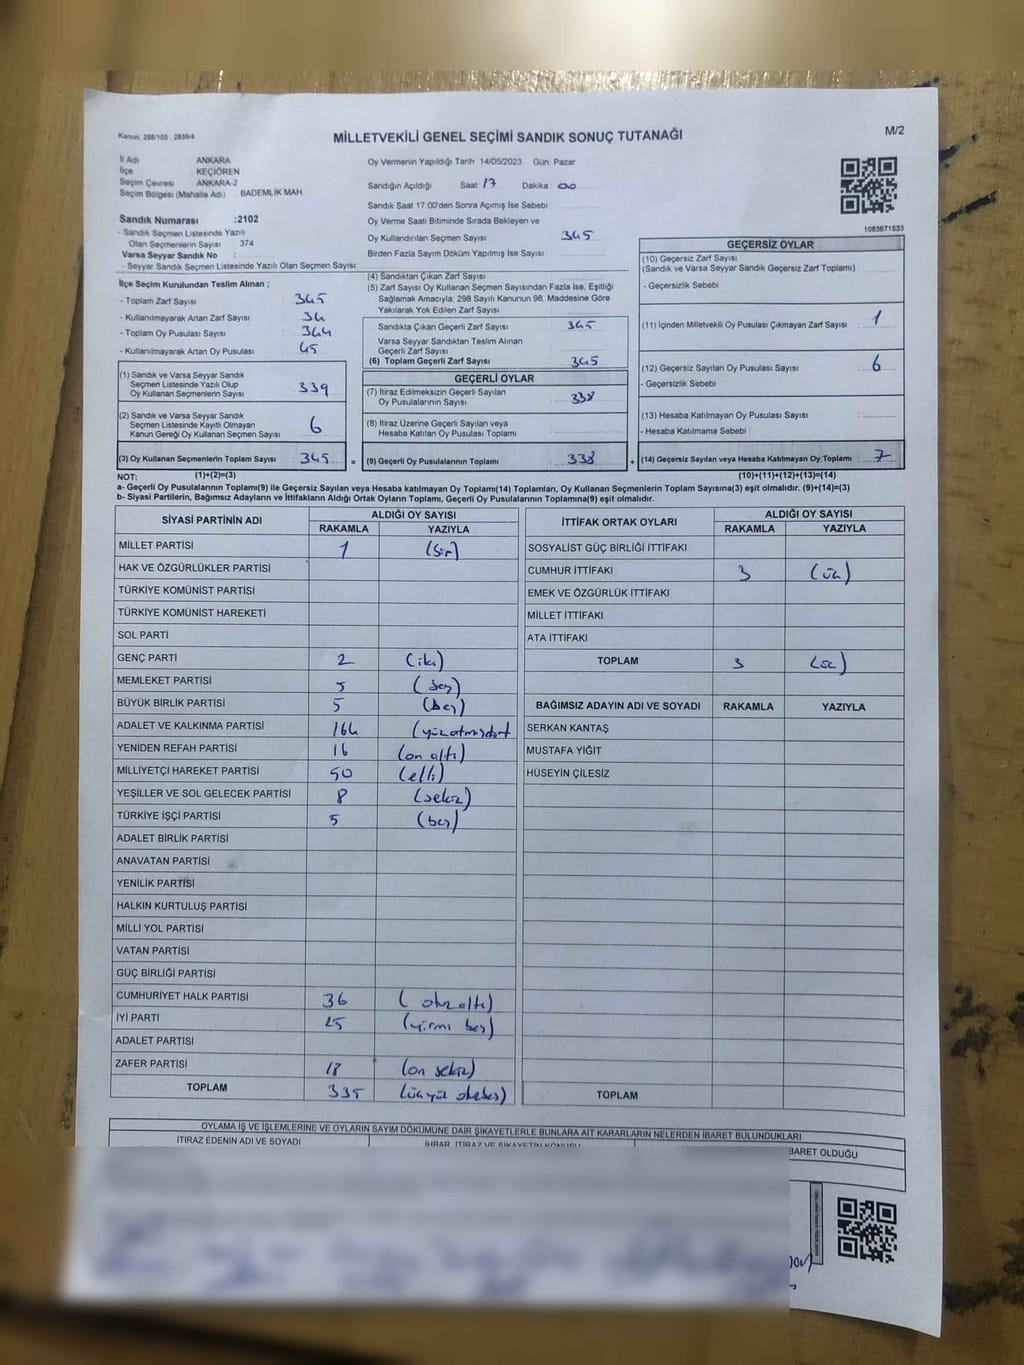 Kanun, 298/105 , 2839/4
MİLLETVEKİLİ GENEL SEÇİMİ SANDIK SONUÇ TUTANAĞI
M/2
İl Adı ANKARA
İlçe KEÇİÖREN
Seçim Çevresi ANKARA-2
Seçim Bölgesi (Mahalle Adı) BADEMLİK MAH.
Oy Vermenin Yapıldığı Tarih 14/05/2023 Gün Pazar
Sandığın Açıldığı Saat 17 Dakika 00
Sandık Saat 17.00'den Sonra Açımış İse Sebebi
Oy Verme Saati Bitiminde Sırada Bekleyen ve
Oy Kullandırılan Seçmen Sayısı 345
Birden Fazla Sayım Döküm Yapılmış İse Sayısı :
1083671533
Sandık Numarası :2102
- Sandık Seçmen Listesinde Yazılı
Olan Seçmenlerin Sayısı 374
Varsa Seyyar Sandık No :
- Seyyar Sandık Seçmen Listesinde Yazılı Olan Seçmen Sayısı:
İlçe Seçim Kurulundan Teslim Alınan ;
- Toplam Zarf Sayısı : 345
- Kullanılmayarak Artan Zarf Sayısı : 34
- Toplam Oy Pusulası Sayısı : 344
- Kullanılmayarak Artan Oy Pusulası : 45
(1) Sandık ve Varsa Seyyar Sandık
Seçmen Listesinde Yazılı Olup
Oy Kullanan Seçmenlerin Sayısı : 339
(2) Sandık ve Varsa Seyyar Sandık
Seçmen Listesinde Kayıtlı Olmayan
Kanun Gereği Oy Kullanan Seçmen Sayısı : 6
(3) Oy Kullanan Seçmenlerin Toplam Sayısı : 345
(4) Sandıktan Çıkan Zarf Sayısı
(5) Zarf Sayısı Oy Kullanan Seçmen Sayısından Fazla İse, Eşitliği
Sağlamak Amacıyla; 298 Sayılı Kanunun 98. Maddesine Göre
Yakılarak Yok Edilen Zarf Sayısı
Sandıkta Çıkan Geçerli Zarf Sayısı : 345
Varsa Seyyar Sandıktan Teslim Alınan
Geçerli Zarf Sayısı
(6) Toplam Geçerli Zarf Sayısı : 345
GEÇERLİ OYLAR
(7) İtiraz Edilmeksizin Geçerli Sayılan
Oy Pusulalarının Sayısı : 338
(8) İtiraz Üzerine Geçerli Sayılan veya
Hesaba Katılan Oy Pusulası Toplamı
= (9) Geçerli Oy Pusulalarının Toplamı : 338
GEÇERSİZ OYLAR
(10) Geçersiz Zarf Sayısı
(Sandık ve Varsa Seyyar Sandık Geçersiz Zarf Toplamı) :
- Geçersizlik Sebebi :
(11) İçinden Milletvekili Oy Pusulası Çıkmayan Zarf Sayısı : 1
(12) Geçersiz Sayılan Oy Pusulası Sayısı : 6
- Geçersizlik Sebebi :
(13) Hesaba Katılmayan Oy Pusulası Sayısı :
- Hesaba Katılmama Sebebi :
+ (14) Geçersiz Sayılan veya Hesaba Katılmayan Oy Toplamı : 7
NOT: (1)+(2)=(3) (10)+(11)+(12)+(13)=(14)
a- Geçerli Oy Pusulalarının Toplamı(9) ile Geçersiz Sayılan veya Hesaba katılmayan Oy Toplamı(14) Toplamları, Oy Kullanan Seçmenlerin Toplam Sayısına(3) eşit olmalıdır. (9)+(14)=(3)
b- Siyasi Partilerin, Bağımsız Adayların ve İttifakların Aldığı Ortak Oyların Toplamı, Geçerli Oy Pusulalarının Toplamına(9) eşit olmalıdır.
SİYASİ PARTİNİN ADI ALDIĞI OY SAYISI
RAKAMLA YAZIYLA
MİLLET PARTİSİ 1 (bir)
HAK VE ÖZGÜRLÜKLER PARTİSİ
TÜRKİYE KOMÜNİST PARTİSİ
TÜRKİYE KOMÜNİST HAREKETİ
SOL PARTİ
GENÇ PARTİ 2 (iki)
MEMLEKET PARTİSİ 5 (beş)
BÜYÜK BİRLİK PARTİSİ 5 (beş)
ADALET VE KALKINMA PARTİSİ 164 (yüzatmışdört
YENİDEN REFAH PARTİSİ 16 (on altı)
MİLLİYETÇİ HAREKET PARTİSİ 50 (elli)
YEŞİLLER VE SOL GELECEK PARTİSİ 8 (sekiz)
TÜRKİYE İŞÇİ PARTİSİ 5 (beş)
ADALET BİRLİK PARTİSİ
ANAVATAN PARTİSİ
YENİLİK PARTİSİ
HALKIN KURTULUŞ PARTİSİ
MİLLİ YOL PARTİSİ
VATAN PARTİSİ
GÜÇ BİRLİĞİ PARTİSİ
CUMHURİYET HALK PARTİSİ 36 (otuz altı)
İYİ PARTİ 25 (yirmi beş)
ADALET PARTİSİ
ZAFER PARTİSİ 18 (on sekiz)
TOPLAM 335 (üçyüz otuzbeş)
İTTİFAK ORTAK OYLARI ALDIĞI OY SAYISI
RAKAMLA YAZIYLA
SOSYALİST GÜÇ BİRLİĞİ İTTİFAKI
CUMHUR İTTİFAKI 3 (üç)
EMEK VE ÖZGÜRLÜK İTTİFAKI
MİLLET İTTİFAKI
ATA İTTİFAKI
TOPLAM 3 (üç)
BAĞIMSIZ ADAYIN ADI VE SOYADI RAKAMLA YAZIYLA
SERKAN KANTAŞ
MUSTAFA YİĞİT
HÜSEYİN ÇİLESİZ
TOPLAM
OYLAMA İŞ VE İŞLEMLERİNE VE OYLARIN SAYIM DÖKÜMÜNE DAİR ŞİKAYETLERLE BUNLARA AİT KARARLARIN NELERDEN İBARET BULUNDUKLARI
İTİRAZ EDENİN ADI VE SOYADI İHBAR, İTİRAZ VE ŞİKAYETİN KONUSU BARET OLDUĞU